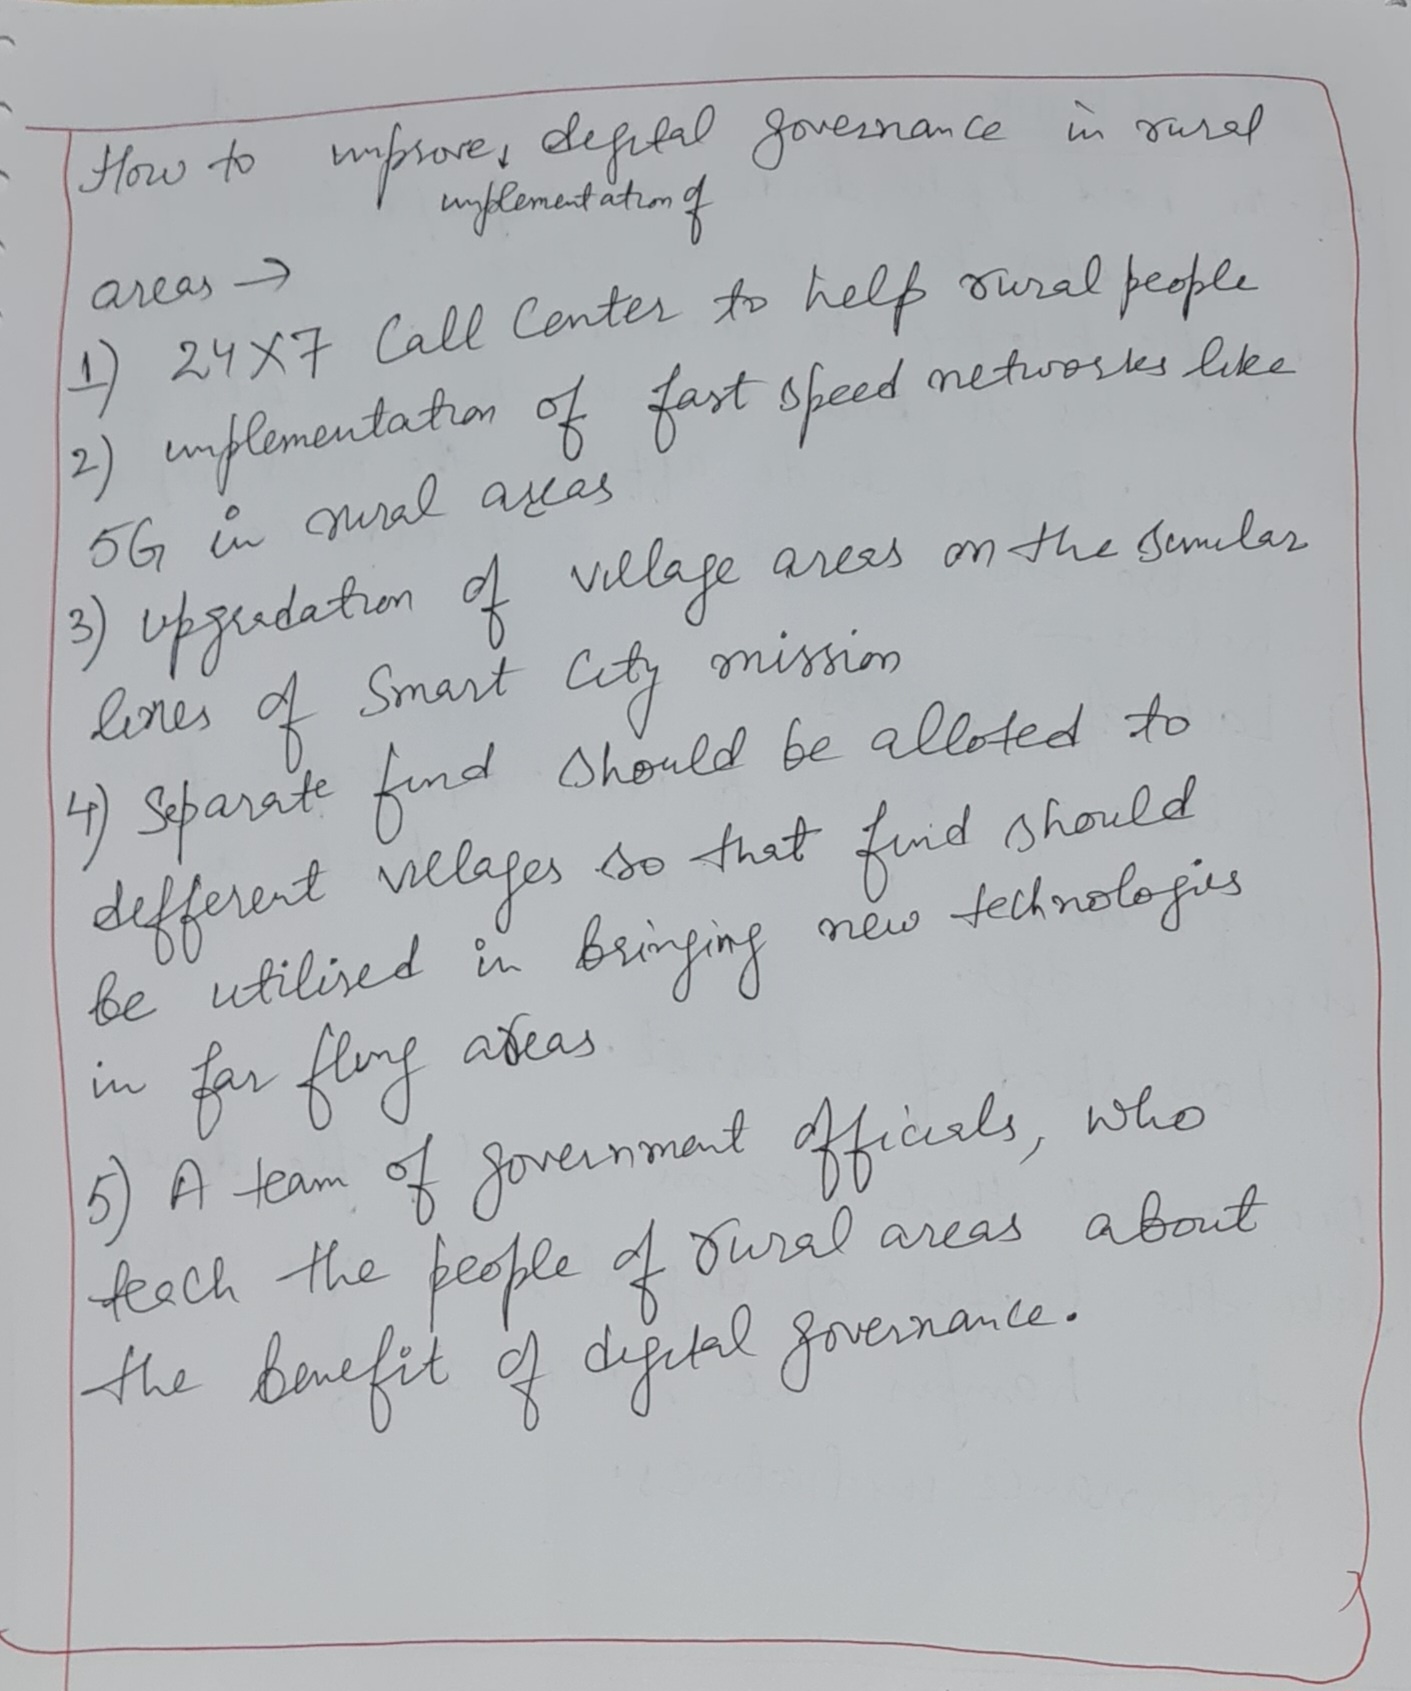 How to improve, digital governance in rural
implementation of
areas →
1) 24X7 Call Center to help rural people
2) implementation of fast speed networks like
5G in rural areas
3) upgradation of village areas on the similar
lines of Smart City mission
4) Separate fund should be alloted to
different villages so that fund should
be utilised in bringing new technologies
in far flung areas
5) A team of government officials, who
teach the people of rural areas about
the benefit of digital governance.